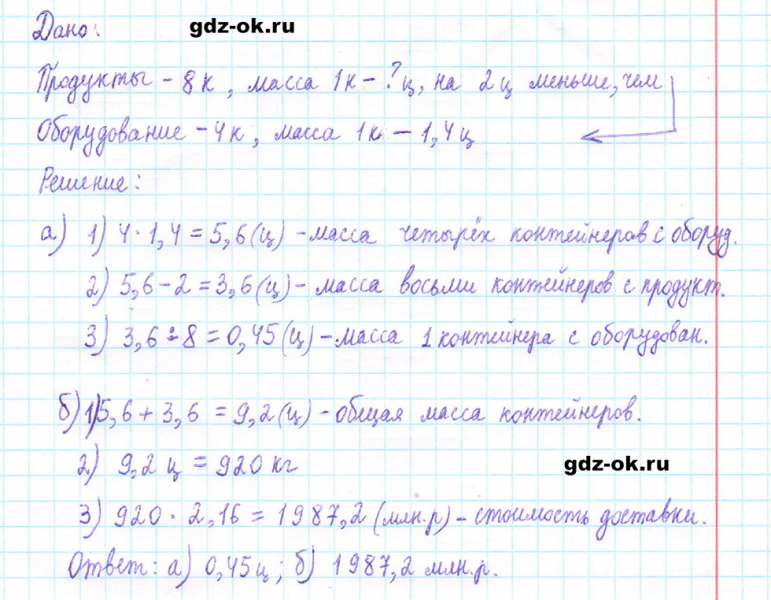 Дано:
gdz-ok.ru
Продукты - 8 к, масса 1к - ? ц, на 2 ц меньше, чем
Оборудование - 4 к, масса 1к - 1,4 ц
Решение:
а) 1) 4 · 1,4 = 5,6 (ц) - масса четырёх контейнеров с оборуд.
2) 5,6 - 2 = 3,6 (ц) - масса восьми контейнеров с продукт.
3) 3,6 : 8 = 0,45 (ц) - масса 1 контейнера с оборудован.
б) 1) 5,6 + 3,6 = 9,2 (ц) - общая масса контейнеров.
2) 9,2 ц = 920 кг
gdz-ok.ru
3) 920 · 2,16 = 1987,2 (млн.р) - стоимость доставки.
Ответ: а) 0,45 ц; б) 1987,2 млн.р.